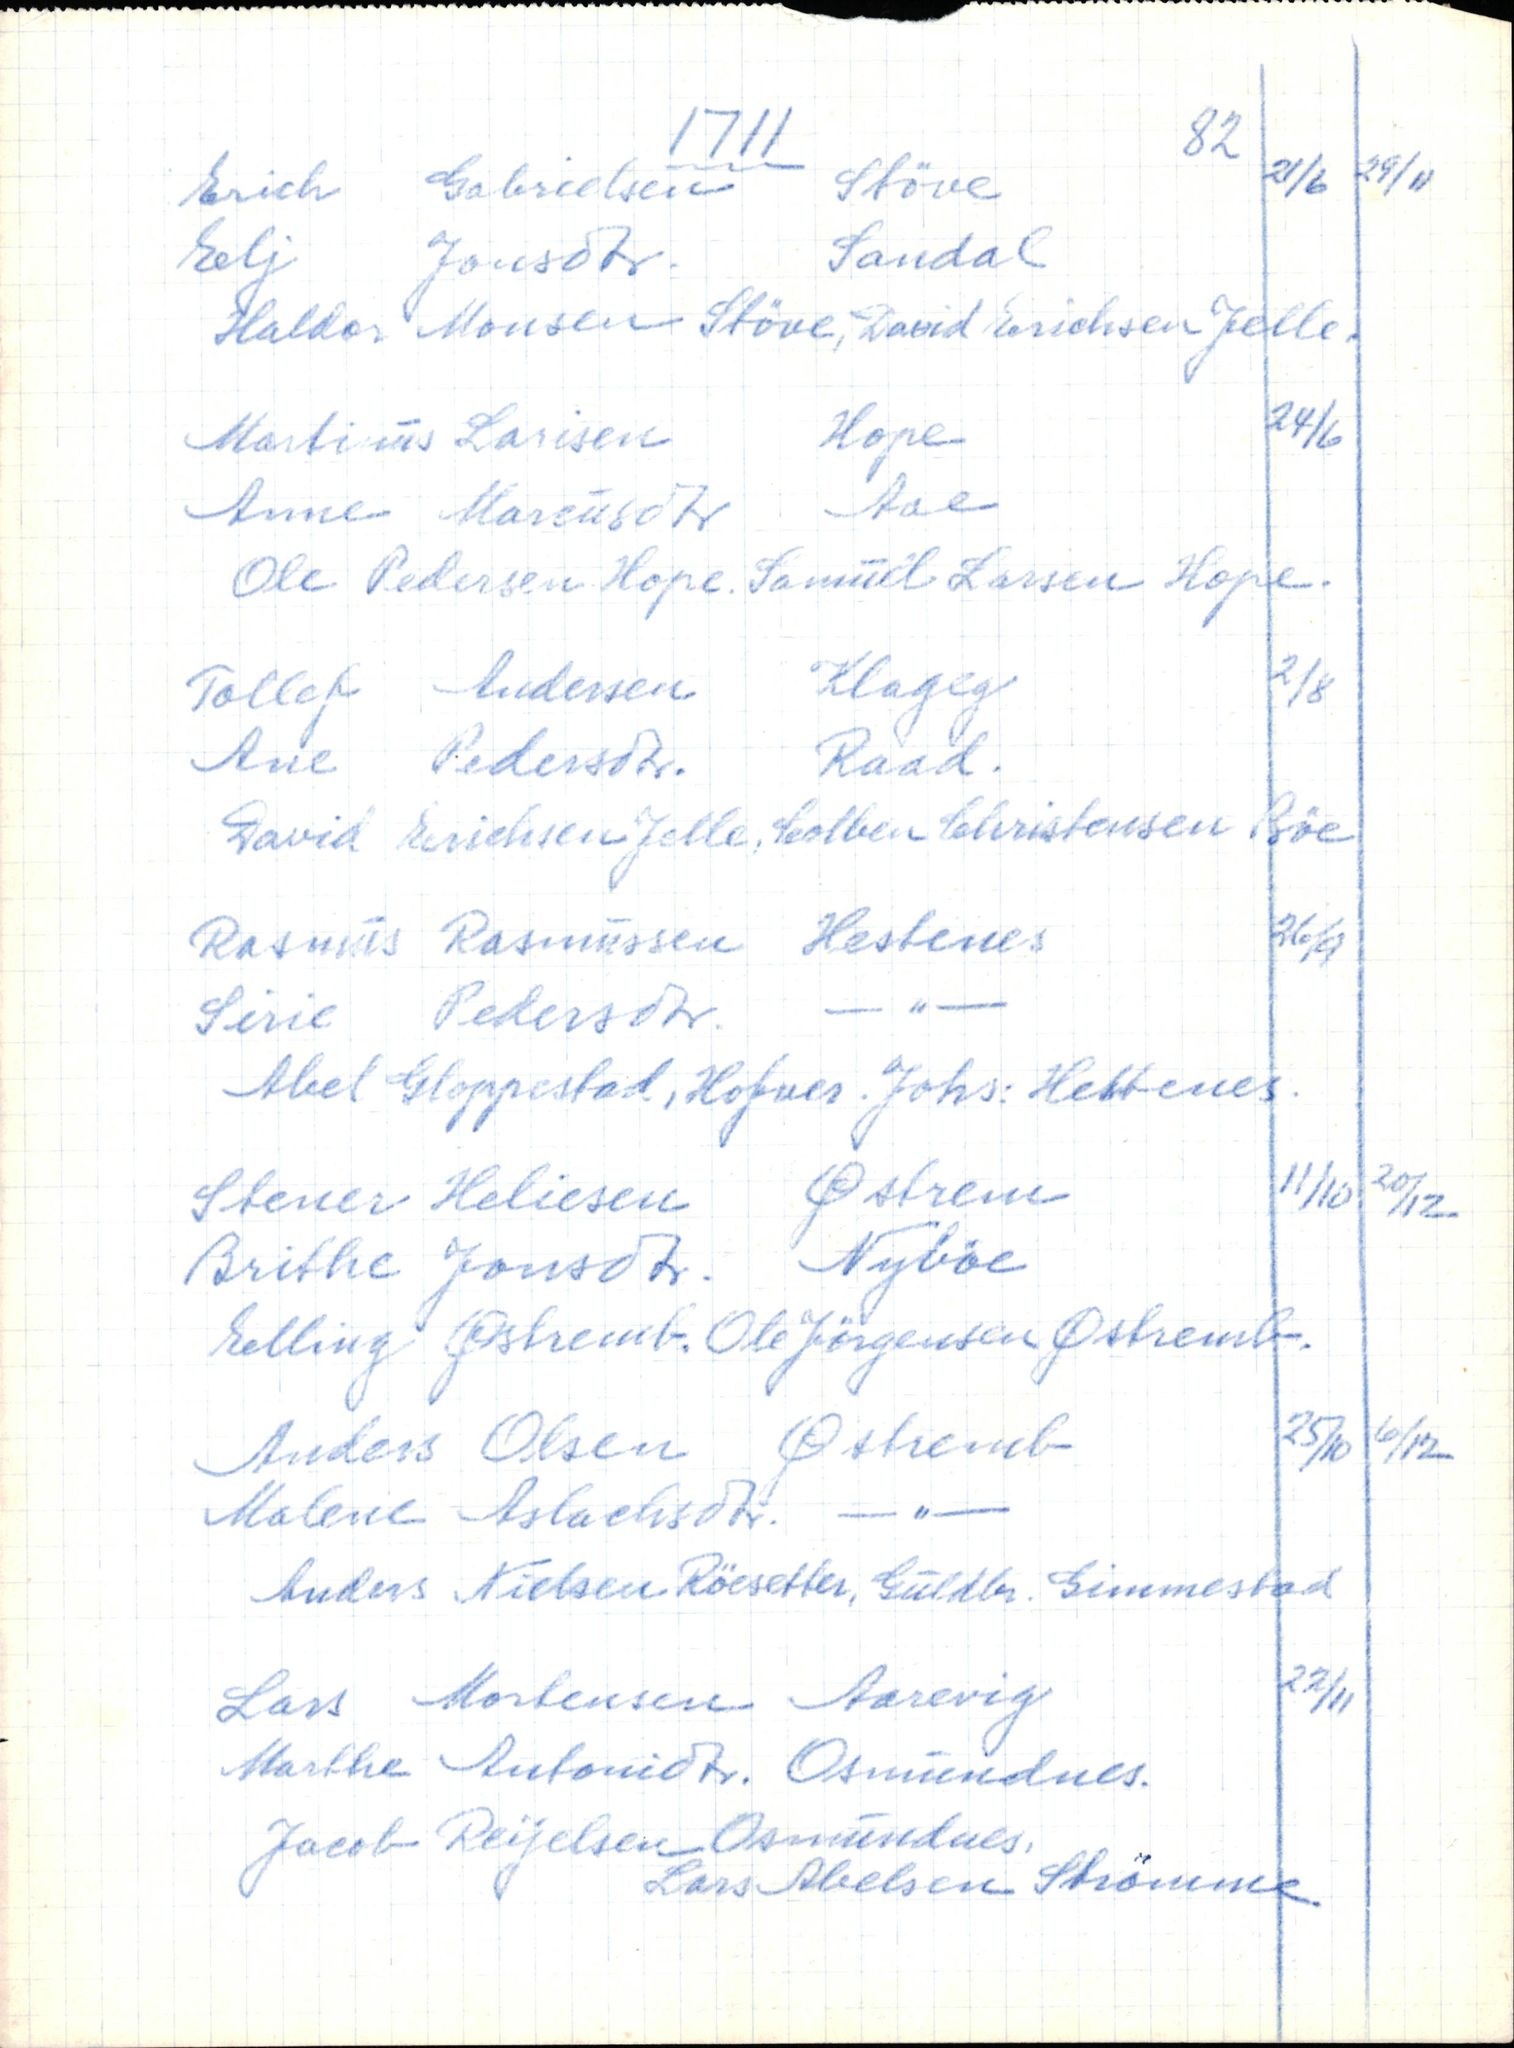 1711 82
Erich Gabrielsen Støve 21/6 29/11
Eelj Jonsdtr. Sandal
Haldor Monsen Støve, David Erichsen Jelle.
Martinus Larisen Hope 24/6
Anne Marcusdtr Aae
Ole Pedersen Hope. Samuel Larsen Hope.
Tollef Andersen Klageg 2/8
Ane Pedersdtr. Raad.
David Erichsen Jelle, Colben Christensen Böe
Rasmus Rasmussen Hestenes 26/9
Sirie Pedersdtr. — " —
Abel Gloppestad, Hofver. Johs: Hestenes.
Stener Heliesen Østrem 11/10 20/12
Brithe Jonsdtr. Nyböe
Elling Østremb. Ole Jörgensen Østremb.
Anders Olsen Østremb 25/10 6/12
Malene Aslachsdtr. — " —
Anders Nielsen Röesetter, Guldbr. Gimmestad
Lars Mortensen Aarevig 22/11
Marthe Antonidtr. Osmundnes.
Jacob Reijelsen Osmundnes.
Lars Abelsen Strömme